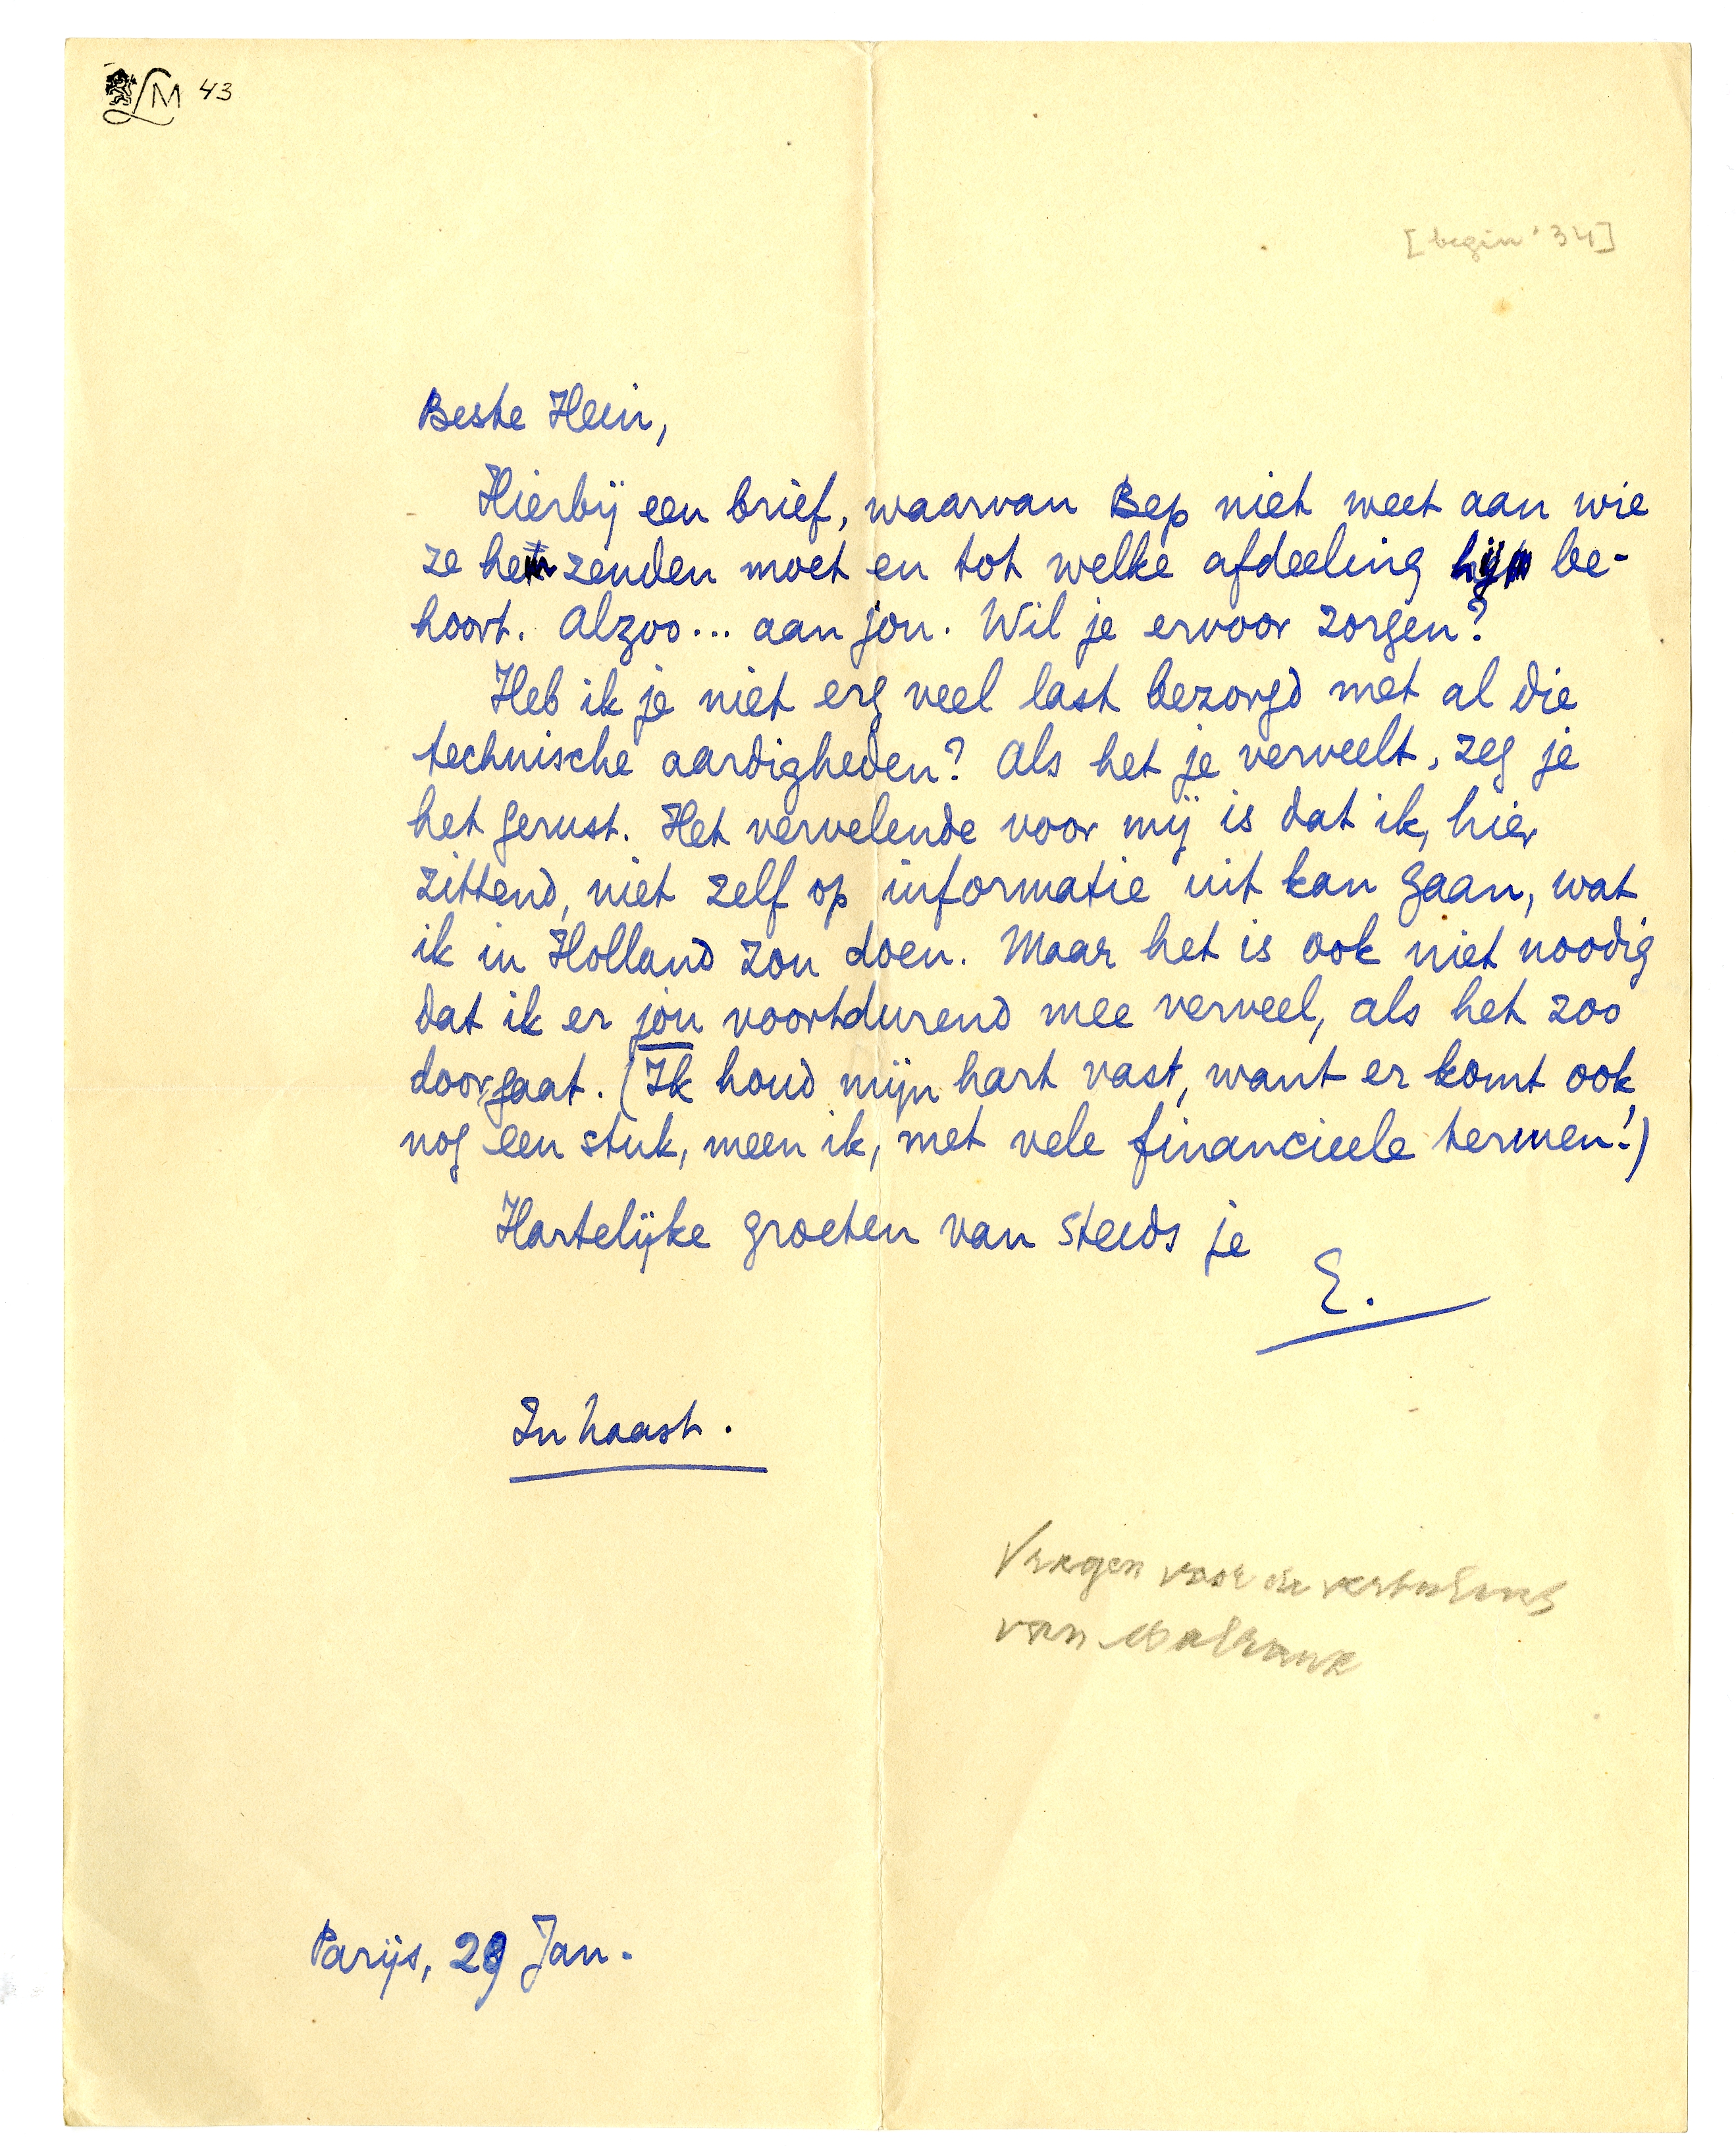 LM 43
[begin '34]
Beste Hein,
Hierbij een brief, waarvan Bep niet weet aan wie
ze hem zenden moet en tot welke afdeeling hij be-
hoort. Alzoo... aan jou. Wil je ervoor zorgen?
Heb ik je niet erg veel last bezorgd met al die
technische aardigheden? Als het je verveelt, zeg je
het gerust. Het vervelende voor mij is dat ik, hier
zittend, niet zelf op informatie uit kan gaan, wat
ik in Holland zou doen. Maar het is ook niet noodig
dat ik er jou voortdurend mee verveel, als het zoo
doorgaat. (Ik houd mijn hart vast, want er komt ook
nog een stuk, meen ik, met vele financieele termen!)
Hartelijke groeten van steeds je
E.
In haast.
Vragen voor de vertaling
van Malraux
Parijs, 29 Jan.